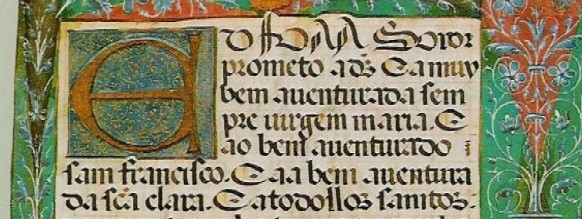 E
prometo a ds̃. E a muy
bem auenturada sem
pre uirgem maria. E
ao bem auenturado
sam francisco. E a a bem auentura
da scã clara. E a todollos santos.